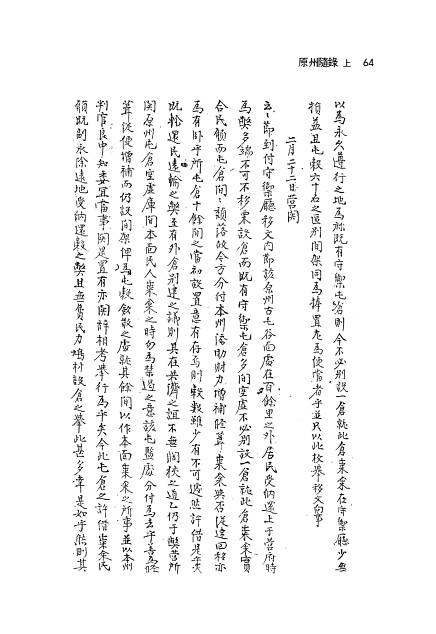 原州隨錄 上 64
以為永久遵行之地為旀既有守禦屯倉則今不必別設一倉就此倉糶糴在守禦廳少無
損益且屯穀六十石之區別間架同為排置尤為便當者乎並只以此枚擧移文向事
二月二十二日營關
玄之節到付守禦廳移文內節該原州古毛谷面處在百餘里之外居民受納還上于營府時
為弊多端不可不移粟設倉而既有守禦屯倉多間空虛不必別設一倉就此倉糶糴實
合民願而屯倉間間頹落故今方分付本州
為有卧乎所屯倉十餘間之當初設置意有存焉則穀數雖少有不可遽然許借是乎矣
既輪還民遠輸之弊至有外倉別建之議則其在共濟之誼不無闊狹之道乙仍于
關原州屯倉空虛庫間本面民人糶糴之時勿為禁遏之意該屯監處分付為去乎
葺從便增補而仍設間架俾為屯穀斂散之處就其餘間以作本面糶糴之所事並以本州
判官良中知委宜當事關是置有亦關辭相考擧行為乎矣今此屯倉之許借糶糴民
願既副永除遠地受納還穀之弊且無費民力鳩材設倉之擧此甚多幸是如乎然則其